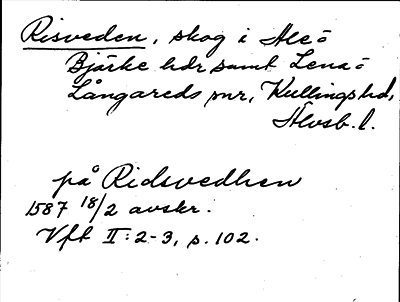 Risveden, skog i Ale o
Bjärke hdr samt Lena o
Långareds snr, Kullings hd,
Älvsb. l.
på Ridsvedhen
1587 18/2 avskr.
Vft II:2-3, s. 102.